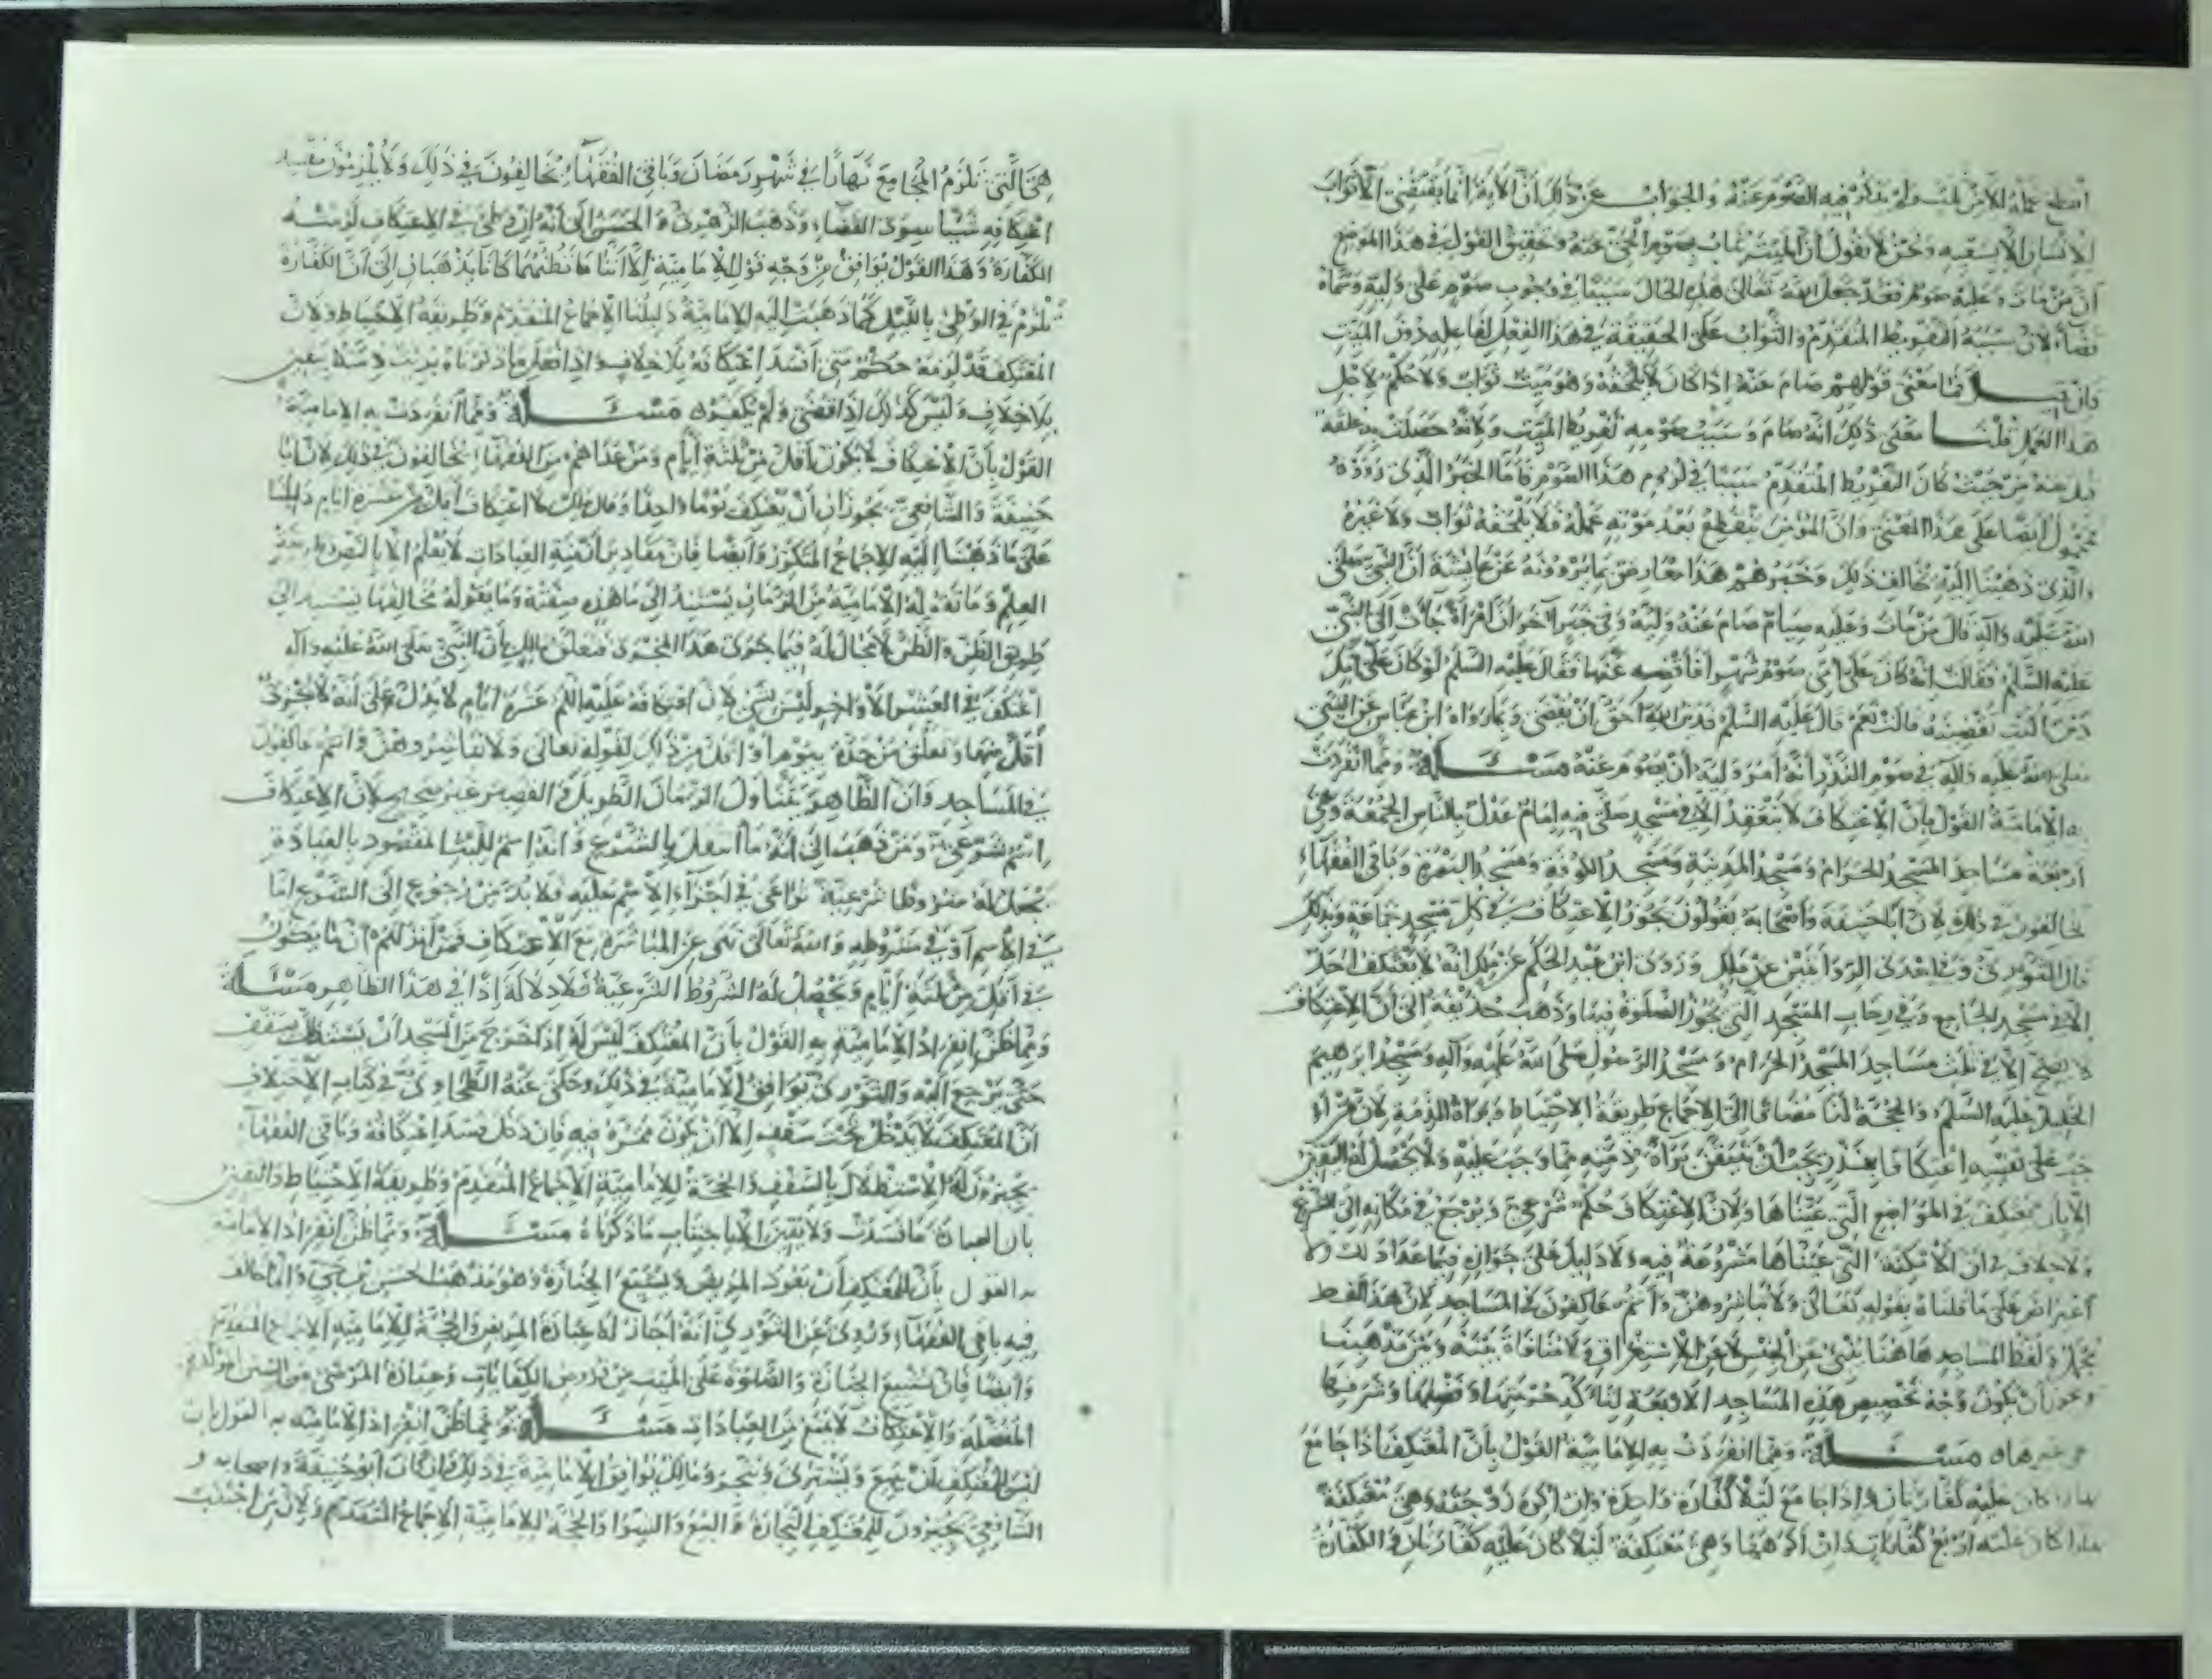 انقطع عمله الا من ثلث ولم يذكر فيه الصوم عنه والجواب عن ذلك ان الاية انما يقتضي الا ثواب
الانسان الا بسعيه ونحن لا نقول ان الميت يثاب بصوم الحي عنه وتحقيق القول في هذا الموضع
ان من مات وعليه صوم فقد جعل الله تعالى هذه الحال سببا في وجوب صوم على وليه وسماه
قضاء لان سببه التفريط المتقدم والثواب على الحقيقة في هذا الفعل لفاعله دون الميت
فان قيل فما معنى قولهم صام عنه اذا كان لا يلحقه وهو ميت ثواب ولا حكم لاجل
هذا العمل قلنا معنى ذلك انه صام وسبب صومه تفريط الميت ولانه حصلت به علقة
قيل عنه من حيث كان التفريط المتقدم سببا في لزوم هذا الصوم فاما الخبر الذي رووه
محمول ايضا على هذا المعنى وان المؤمن ينقطع بعد موته عمله فلا يلحقه ثواب ولا غيره
والذي ذهبنا اليه يخالف ذلك وخبرهم هذا معارض بما يروونه عن عايشة ان النبي صلى
الله عليه واله قال من مات وعليه صيام صام عنه وليه وفي خبر اخر ان امراة جات الى النبي
عليه السلم فقالت انه كان على امي صوم شهر افاقضيه عنها فقال عليه السلم لو كان على امك
دين اكنت تقضينه قالت نعم قال عليه السلم فدين الله احق ان يقضى وبما رواه ابن عباس عن النبي
صلى الله عليه واله في صوم النذر انه امر وليه ان يصوم عنه مسئلة ومما انفردت
به الامامية القول بان الاعتكاف لا ينعقد الا في مسجد صلى فيه امام عدل بالناس الجمعة وهي
اربعة مساجد المسجد الحرام ومسجد المدينة ومسجد الكوفة ومسجد البصرة وباقي الفقهاء
يخالفون في ذلك لان ابا حنيفة واصحابه يقولون يجوز الاعتكاف في كل مسجد جماعة وبذلك
قال الثوري وفي احدى الروايتين عن ملك وروى ابن عبد الحكم عن ملك انه لا يعتكف احد
الا في مسجد الجامع وفي رحاب المسجد التي يجوز الصلوة فيها وذهب حذيفة الى ان الاعتكاف
لا يصح الا في ثلث مساجد المسجد الحرام ومسجد الرسول صلى الله عليه وآله ومسجد ابرهيم
الخليل عليه السلم والحجة لنا مضافا الى الاجماع طريقة الاحتياط وبراة الذمة لان من اوجب
على نفسه اعتكافا بنذر يجب ان يتيقن براة ذمته مما وجب عليه ولا يحصل له اليقين
الا بان يعتكف في المواضع التي عيناها ولان الاعتكاف حكم شرعي ويرجع في مكانه الى الشرع
ولا خلاف في ان الامكنة التي عيناها مشروعة فيه ولا دليل على جوازه فيما عدا ذلك ولا
اعتراض على ما قلناه بقوله تعالى ولا تباشروهن وانتم عاكفون في المساجد لان هذا اللفظ
مجمل ولفظ المساجد هاهنا ينبئ عن الجنس لا عن الاستغراق ولا منافاة بينه وبين مذهبنا
ويجوز ان يكون وجه تخصيص هذه المساجد الاربعة لتاكد حرمتها وفضلها وشرفها
على غيرها مسئلة ومما انفردت به الامامية القول بان المعتكف اذا جامع
نهارا كان عليه كفارتان واذا جامع ليلا كفارة واحدة وان اكره زوجته وهي معتكفة
نهارا كان عليه اربع كفارات وان اكرهها وهي معتكفة ليلا كان عليه كفارتان والكفارة
هي التي تلزم المجامع نهارا في شهر رمضان وباقي الفقهاء يخالفون في ذلك ولا يلزمون مفسد
اعتكافه شيئا سوى القضاء وذهب الزهري والحسن الى انه ان وطئ في الاعتكاف لزمته
الكفارة وهذا القول يوافق من وجه قول الامامية الا اننا ما نظنهما كانا يذهبان الى ان الكفارة
تلزم في الوطئ بالليل كما ذهبت اليه الامامية دليلنا الاجماع المتقدم وطريقة الاحتياط ولان
المعتكف قد لزمه حكم متى افسد اعتكافه بلا خلاف واذا فعل ما ذكرناه برئت ذمته بيقين
بلا خلاف وليس كذلك اذا قضى ولم يكفر مسئلة ومما انفردت به الامامية
القول بان الاعتكاف لا يكون اقل من ثلثة ايام ومن عداهم من الفقهاء يخالفون في ذلك لان ابا
حنيفة والشافعي يجوزان ان يعتكف يوما واحدا وقال ملك لا اعتكاف اقل من عشرة ايام دليلنا
على ما ذهبنا اليه الاجماع المتكرر وايضا فان مقادير ازمنة العبادات لا يعلم الا بالنص وطريقة
العلم وما تقوله الامامية من الزمان يستند الى ما هذه صفته وما يقوله مخالفها يستند الى
طريق الظن والظن لا مجال له فيما جرى هذا المجرى فتعلق ملك بان النبي صلى الله عليه واله
اعتكف في العشر الاواخر ليس بشئ لان اعتكافه عليه السلم عشرة ايام لا يدل على انه لا يجوز
اقل منها وتعلق من حده بيوم او اقل من ذلك لقوله تعالى ولا تباشروهن وانتم عاكفون
في المساجد وان الظاهر يتناول الزمان الطويل والقصير غير صحيح لان الاعتكاف
اسم شرعي ومن ذهب الى انه ما انتقل بالشرع وانه اسم للبث المقصود بالعبادة
يجعل له شروطا شرعية تراعى في اجراء الاسم عليه فلا بد من رجوع الى الشرع اما
في الاسم او في شروطه والله تعالى نهى عن المباشرة مع الاعتكاف فمن اين لكم انما يكون
في اقل من ثلثة ايام ويحصل له الشروط الشرعية فلا دلالة اذا في هذا الظاهر مسئلة
ومما ظن انفراد الامامية به القول بان المعتكف ليس له اذا خرج من المسجد ان يستظل بسقف
حتى يرجع اليه والثوري يوافق الامامية في ذلك وحكى عنه الطحاوي في كتاب الاختلاف
ان المعتكف لا يدخل تحت سقف الا ان يكون ممره فيه فان دخل فسد اعتكافه وباقي الفقهاء
يجيزون له الاستظلال بالسقف والحجة للامامية الاجماع المتقدم وطريقة الاحتياط واليقين
بان العبادة ما فسدت ولا يقين الا باجتناب ما ذكرناه مسئلة ومما ظن انفراد الامامية
به القول بان للمعتكف ان يعود المريض ويشيع الجنازة وهو مذهب الحسن بن حي وانما خالف
فيه باقي الفقهاء وروى عن الثوري انه اجاز له عيادة المريض والحجة للامامية الاجماع المتقدم
وايضا فان تشييع الجنازة والصلوة على الميت من فروض الكفايات وعيادة المرضى من السنن
المفضلة والاعتكاف لا يمنع من العبادات مسئلة ومما ظن انفراد الامامية به القول بان
ليس للمعتكف ان يبيع ويشتري ويتجر ومالك يوافق الامامية في ذلك وان كان ابو حنيفة واصحابه و
الشافعي يجيزون للمعتكف التجارة والبيع والشرا والحجة للامامية الاجماع المتقدم ولان من اجتنب